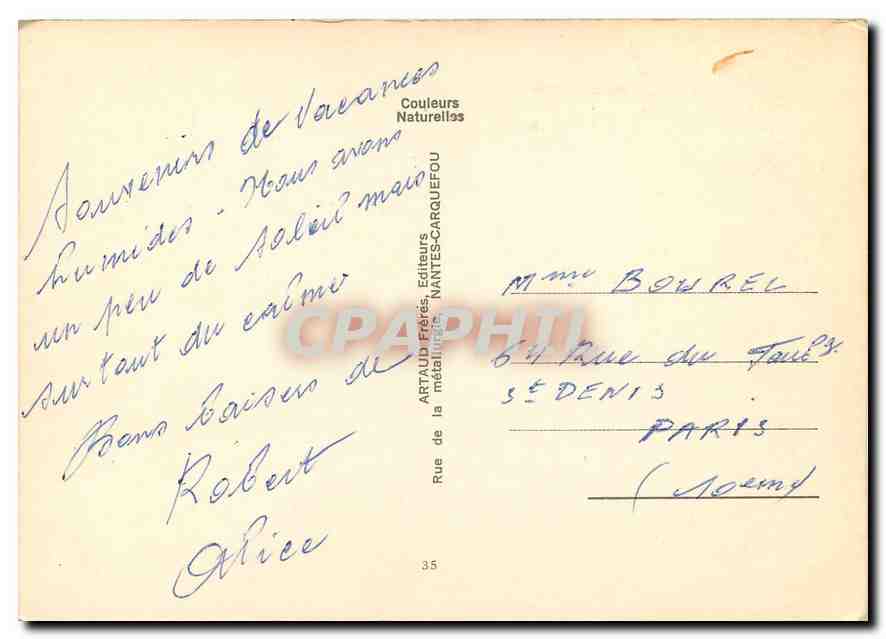 Souvenirs de vacances
humides. Nous avons
un peu de soleil mais
surtout du calme
Bons baisers de
Robert
Alice
Couleurs
Naturelles
ARTAUD Frères, Editeurs
Rue de la métallurgie, NANTES-CARQUEFOU
35
Mme BOUREL
64 Rue du Faubg.
St DENIS
PARIS
(10eme)
CPAPHIL